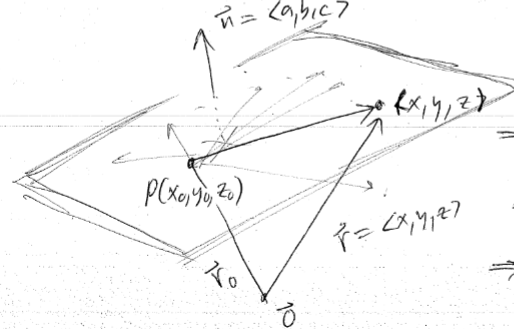 n⃗ = <a,b,c>
(x,y,z)
⇒
P(x₀,y₀,z₀)
r⃗ = <x,y,z>
r⃗₀
⇒
0⃗